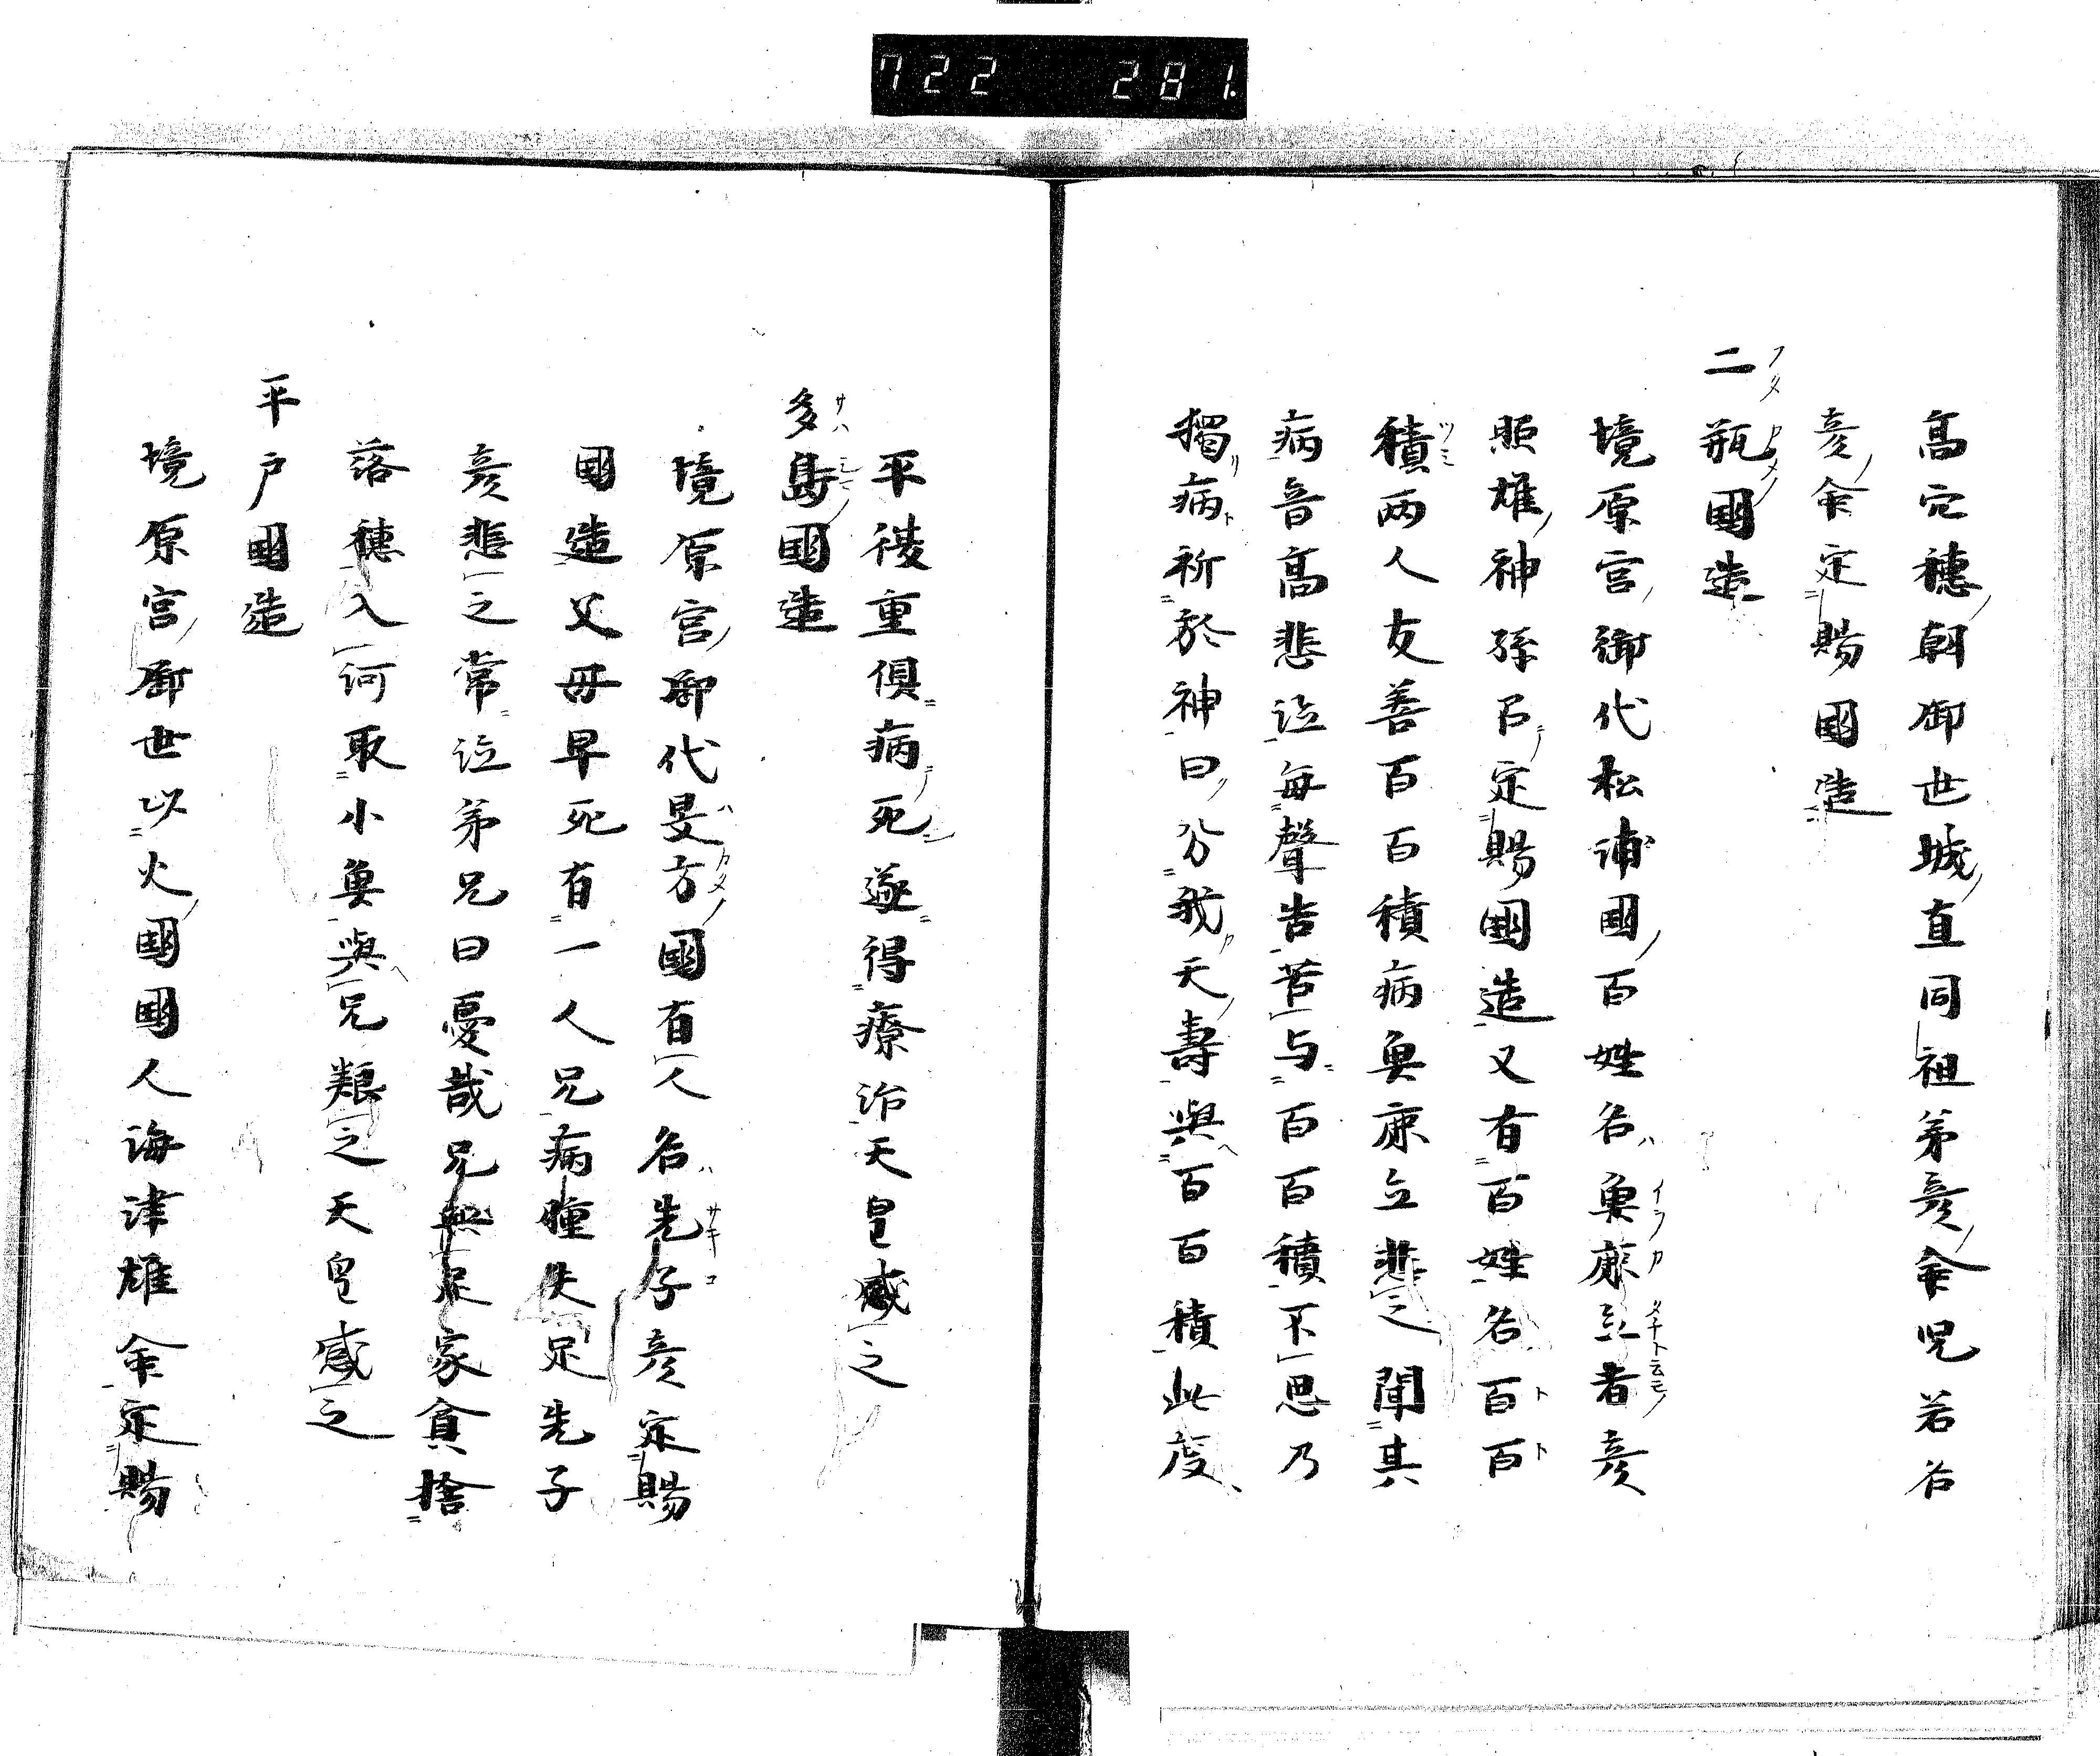 722 281.
高穴穗朝御世城直同祖弟彦命児若右
彦命定賜國造
二瓶國造
境原宮御代松浦國百姓名魚鹿立者彦
照雄神孫臣定賜國造又有百姓名百百
積兩人友善百百積病魚康立悲之聞其
病音高悲泣毎聲告苦与百百積不思乃
獨病祈於神曰分我天壽與百百積此度
平後重俱病死遂得療治天皇感之
多島國造
境原宮御代旻方國有人名先子彦定賜
國造父母早死有一人兄病瞳失足先子
彦悲之常泣弟兄曰憂哉兄無足家貪捨
落穗入河取小魚與兄粮之天皇感之
平戸國造
境原宮御世以火國國人海津雄命定賜